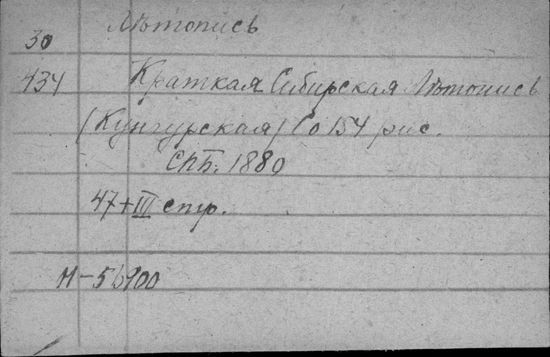 Лѣтопись
30
434 Краткая Сибирская Лѣтопись
(Кунгурская) Со 154 рис.
СПб. 1880
47 + III стр.